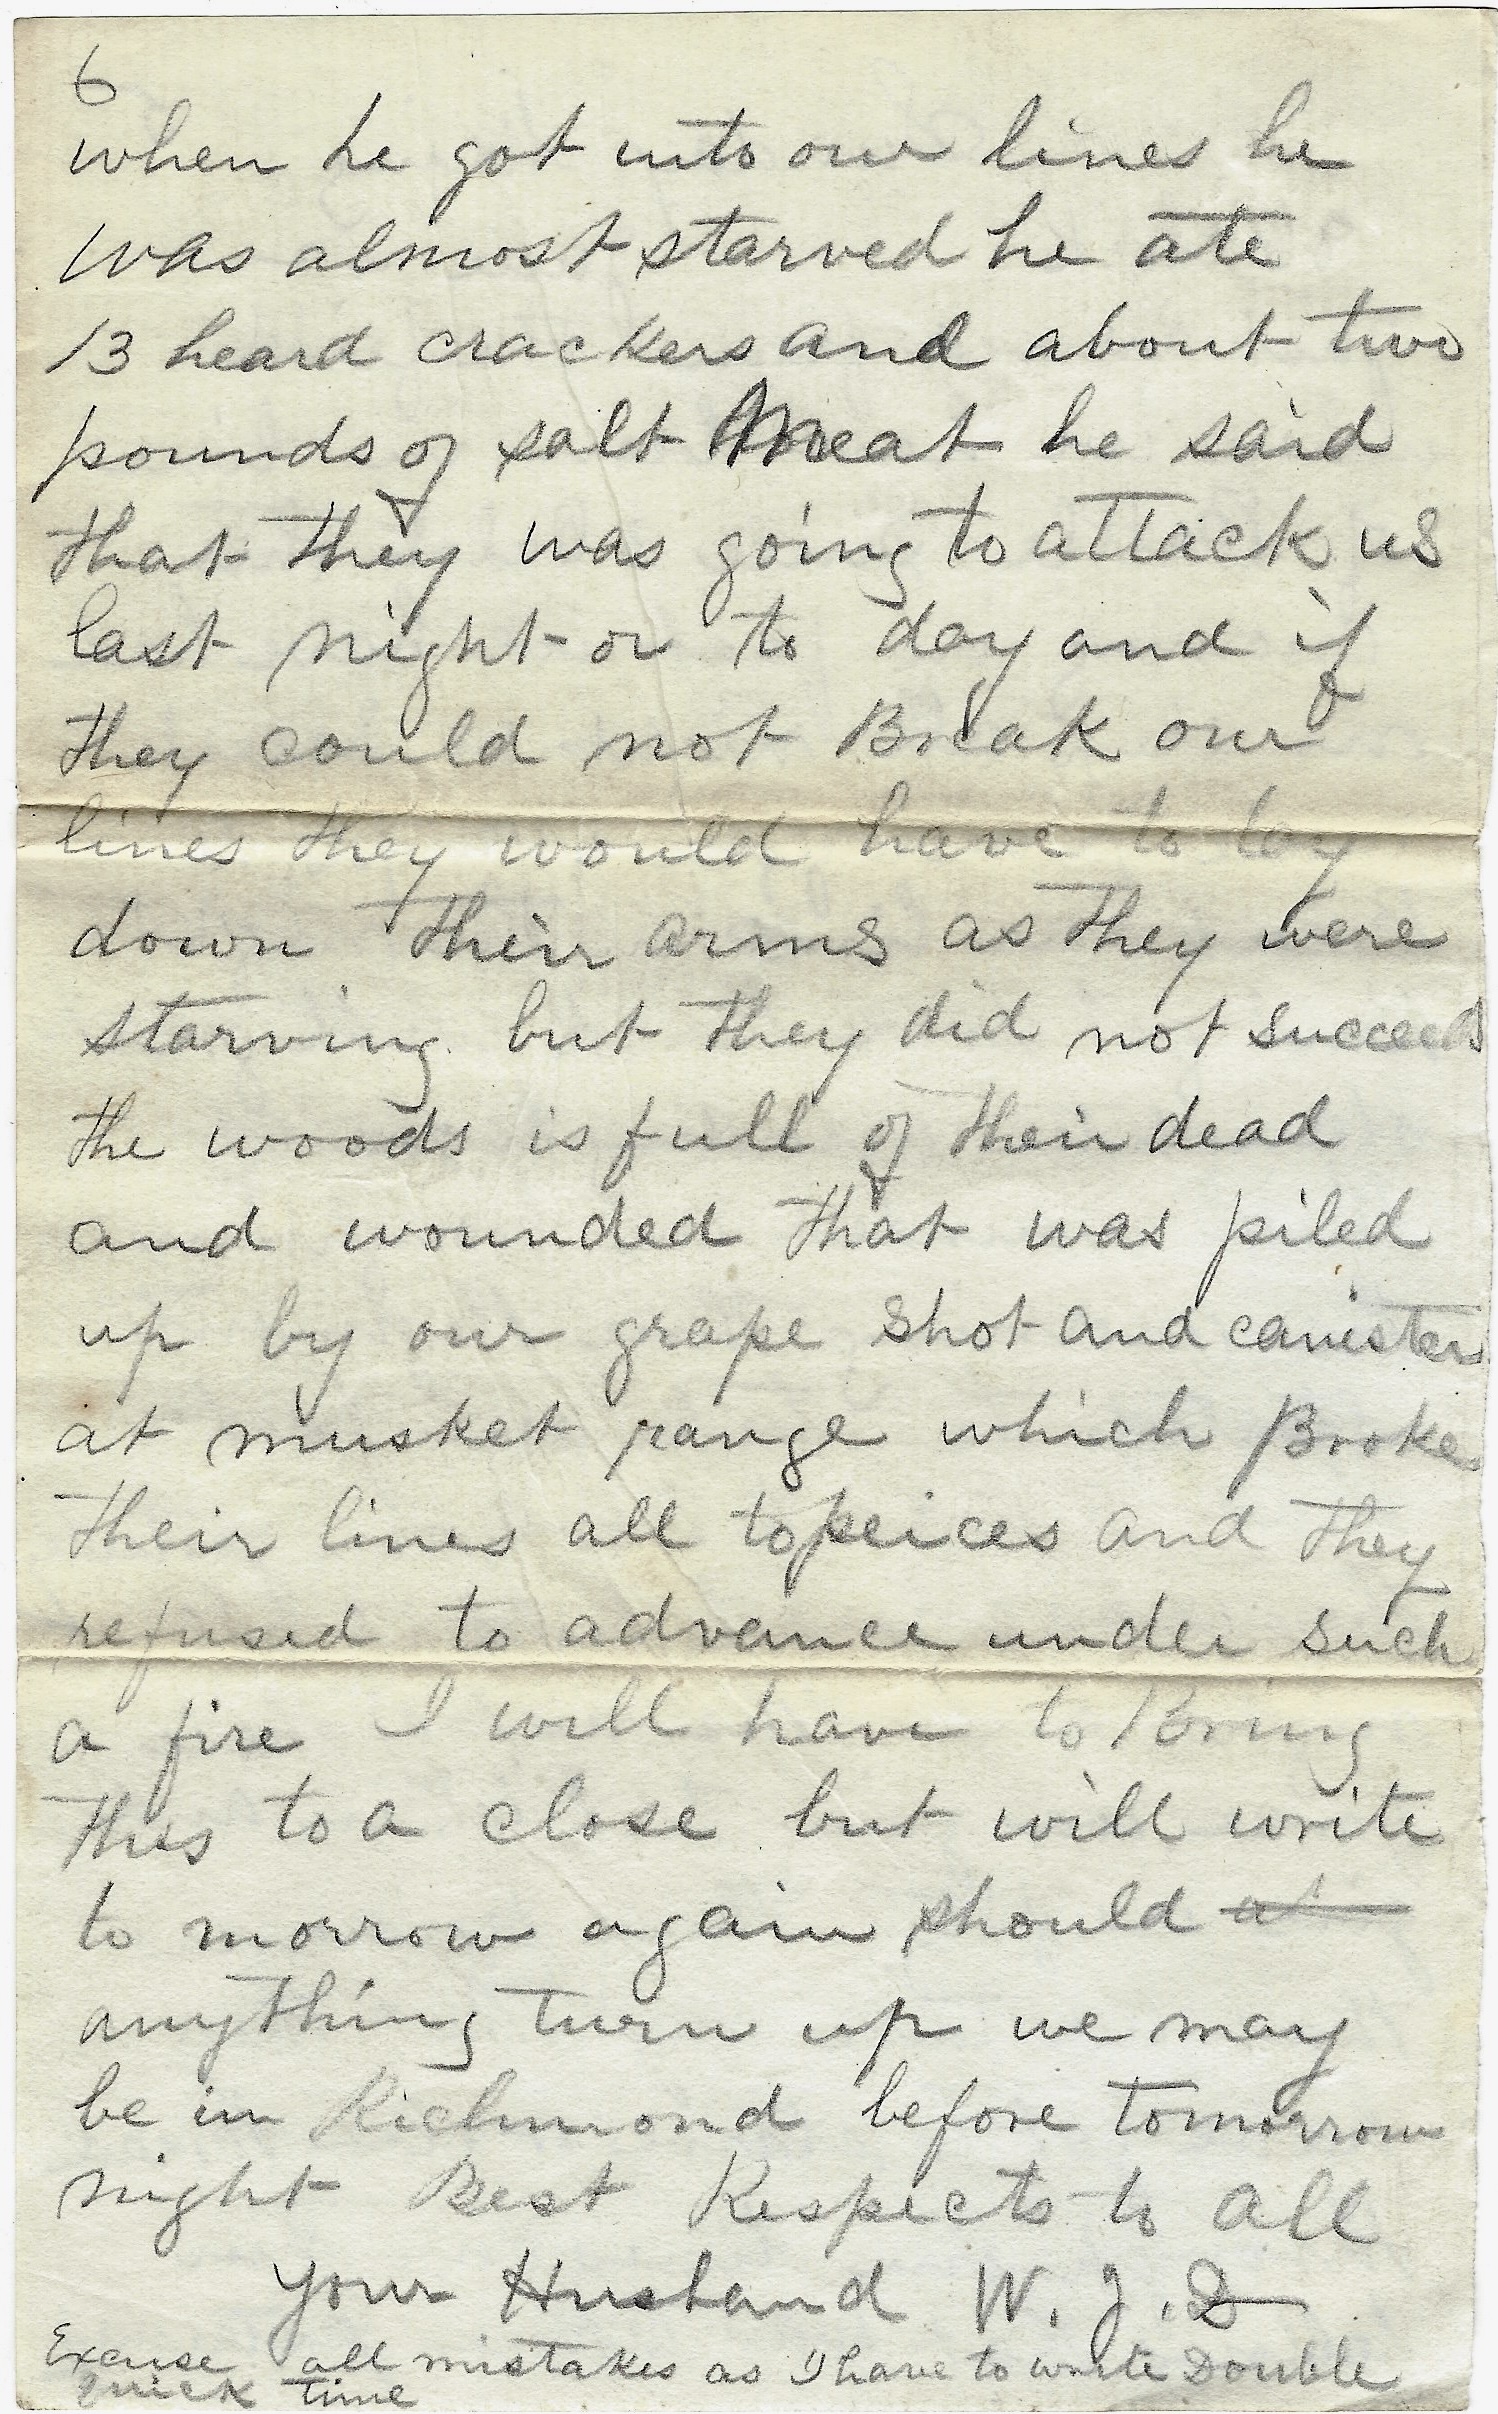 6
when he got into our lines he
was almost starved he ate
13 heard crackers and about two
pounds of salt Meat he said
that they was going to attack us
last night or to day and if
they could not Break our
lines they would have to lay
down their arms as they were
starving but they did not succeed
the woods is full of their dead
and wounded that was piled
up by our grape shot and canister
at musket range which Broke
their lines all to peices and they
refused to advance under such
a fire I will have to Bring
this to a close but will write
to morrow again should at
anything turn up we may
be in Richmond before tomorrow
night Best Respects to all
your Husband W. J. D
Excuse all mistakes as I have to write Double
Quick time